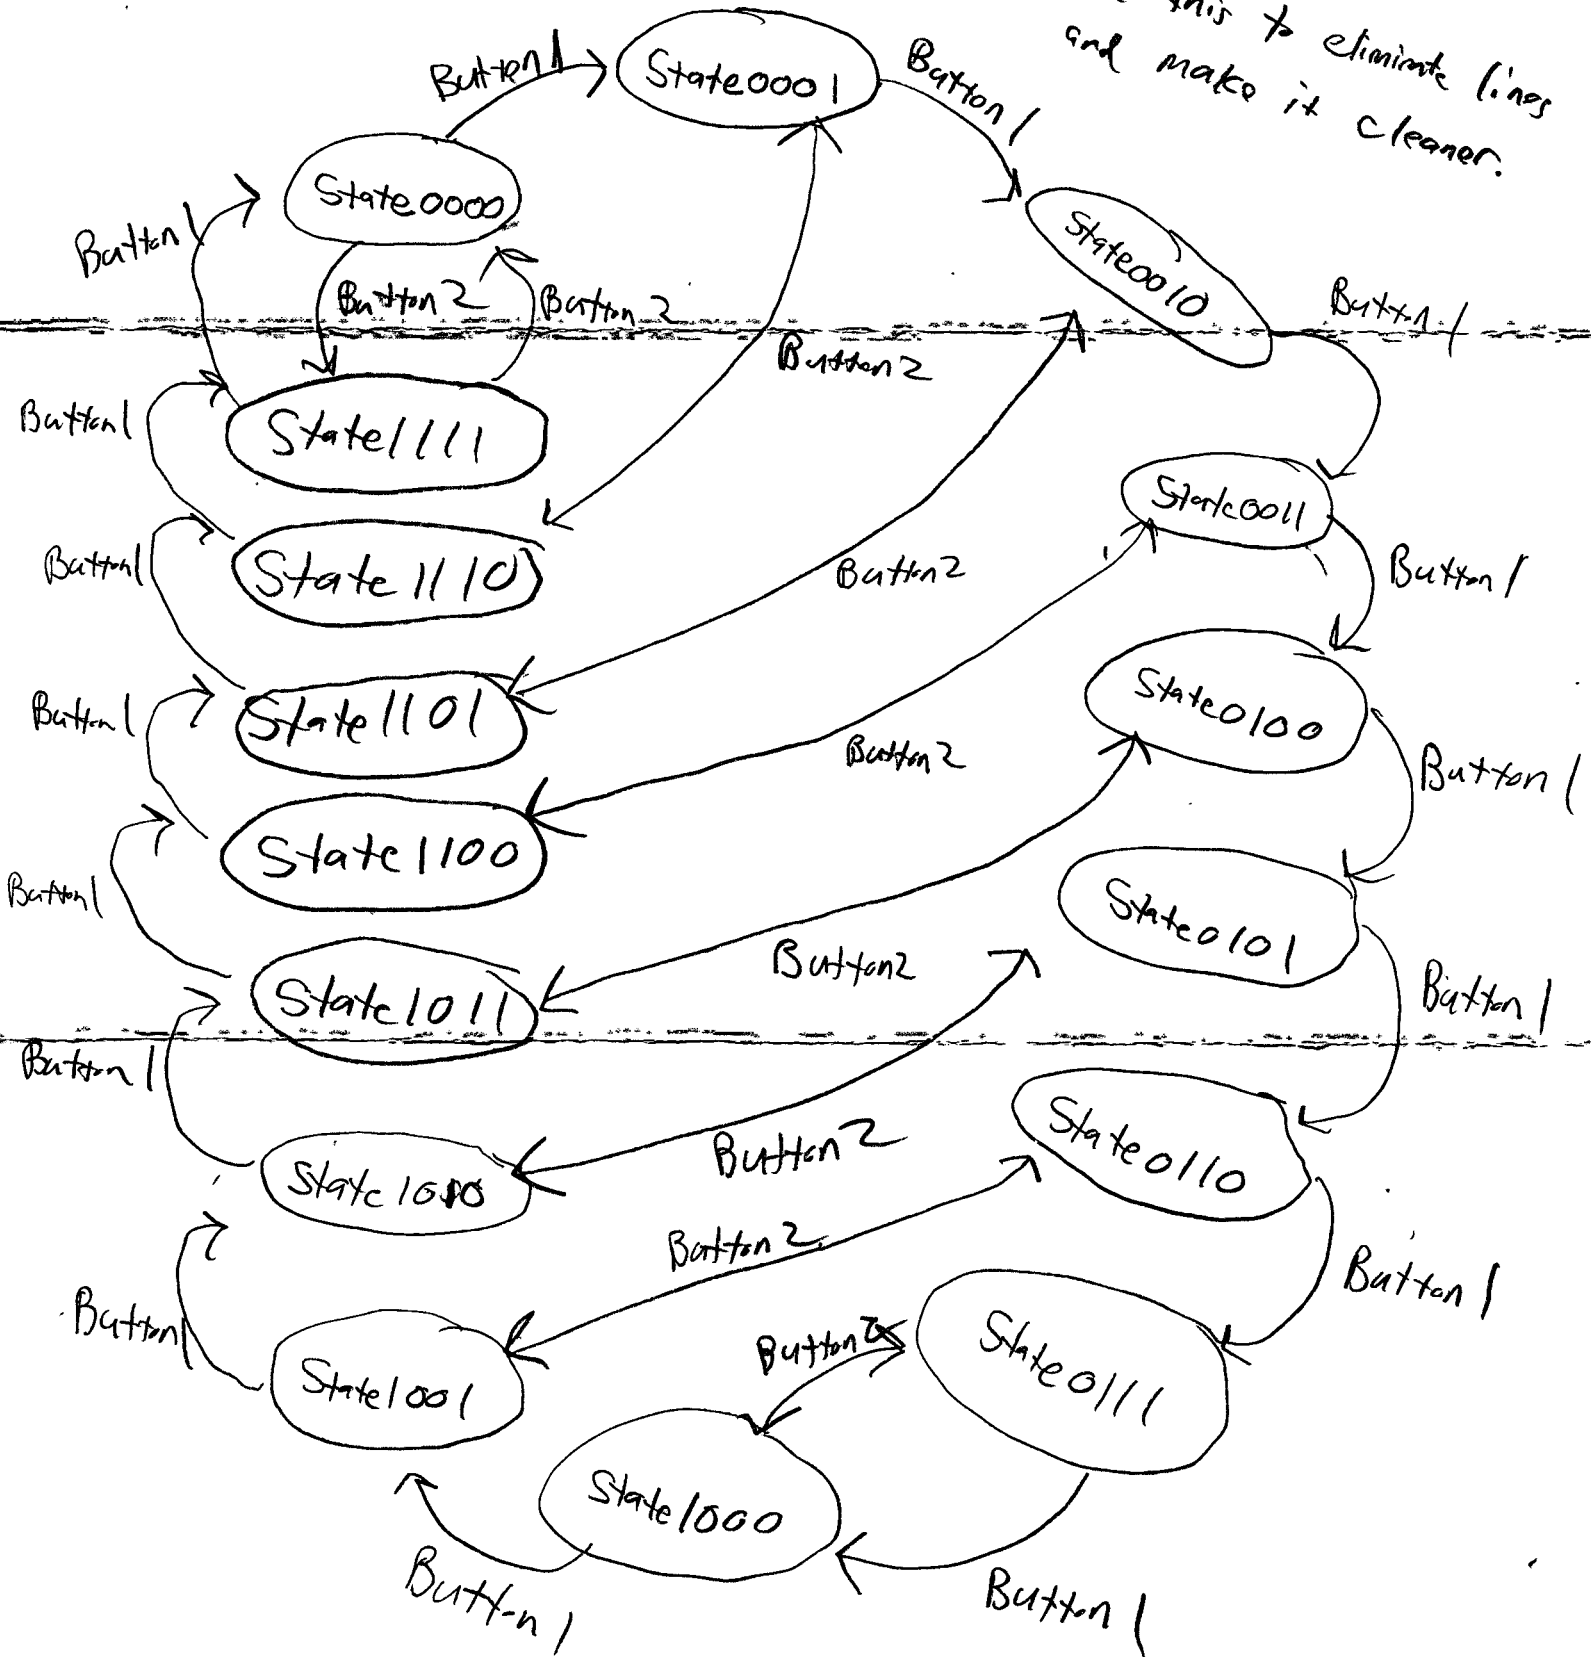 this to eliminate lines
and make it cleaner.
Button1
State0001
Button1
State0000
Button1
State0010
Button2
Button2
Button1
Button2
Button1
State1111
State0011
Button1
State1110
Button2
Button1
State0100
Button1
State1101
Button2
Button1
State1100
Button1
State0101
Button2
State1011
Button1
Button1
State0110
Button2
State1010
Button2
Button1
Button1
State0111
Button2
State1001
State1000
Button1
Button1